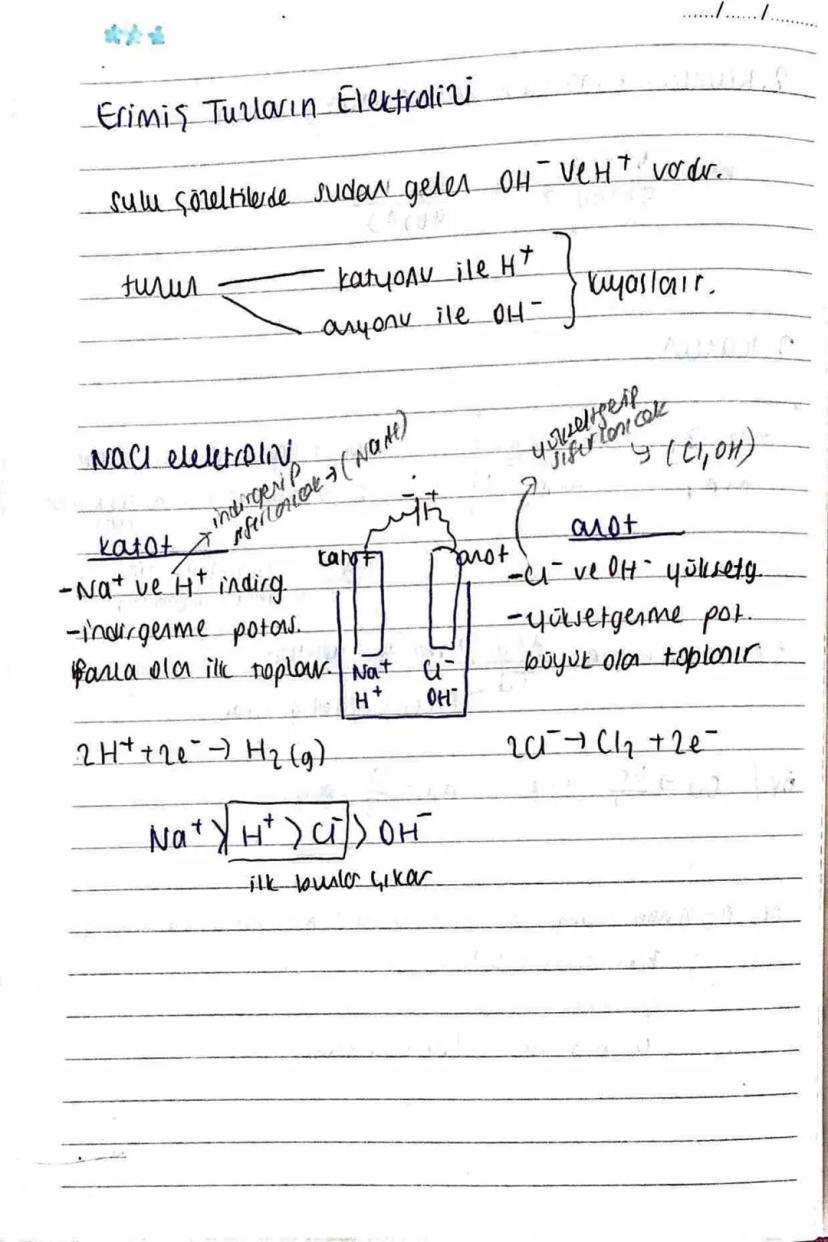 ....../....../.........
Erimiş Tuzların Elektrolizi
sulu çözeltilerde sudan gelen OH⁻ ve H⁺ vardır.
tuzun — katyonu ile H⁺
anyonu ile OH⁻ } kıyaslanır.
NaCl elektrolizi
indirgenip sıfırlanıcak → (Na,H)
yükseltgenip sıfırlanıcak
↳ (Cl, OH)
katot
-Na⁺ ve H⁺ indirg.
-indirgenme potans.
fazla olan ilk toplanır.
- +
katot anot
Na⁺ Cl⁻
H⁺ OH⁻
anot
-Cl⁻ ve OH⁻ yüksetg.
-yüksetgenme pot.
büyük olan toplanır
2H⁺ + 2e⁻ → H₂(g)
2Cl⁻ → Cl₂ + 2e⁻
Na⁺ > H⁺ > Cl⁻ > OH⁻
ilk bunlar çıkar